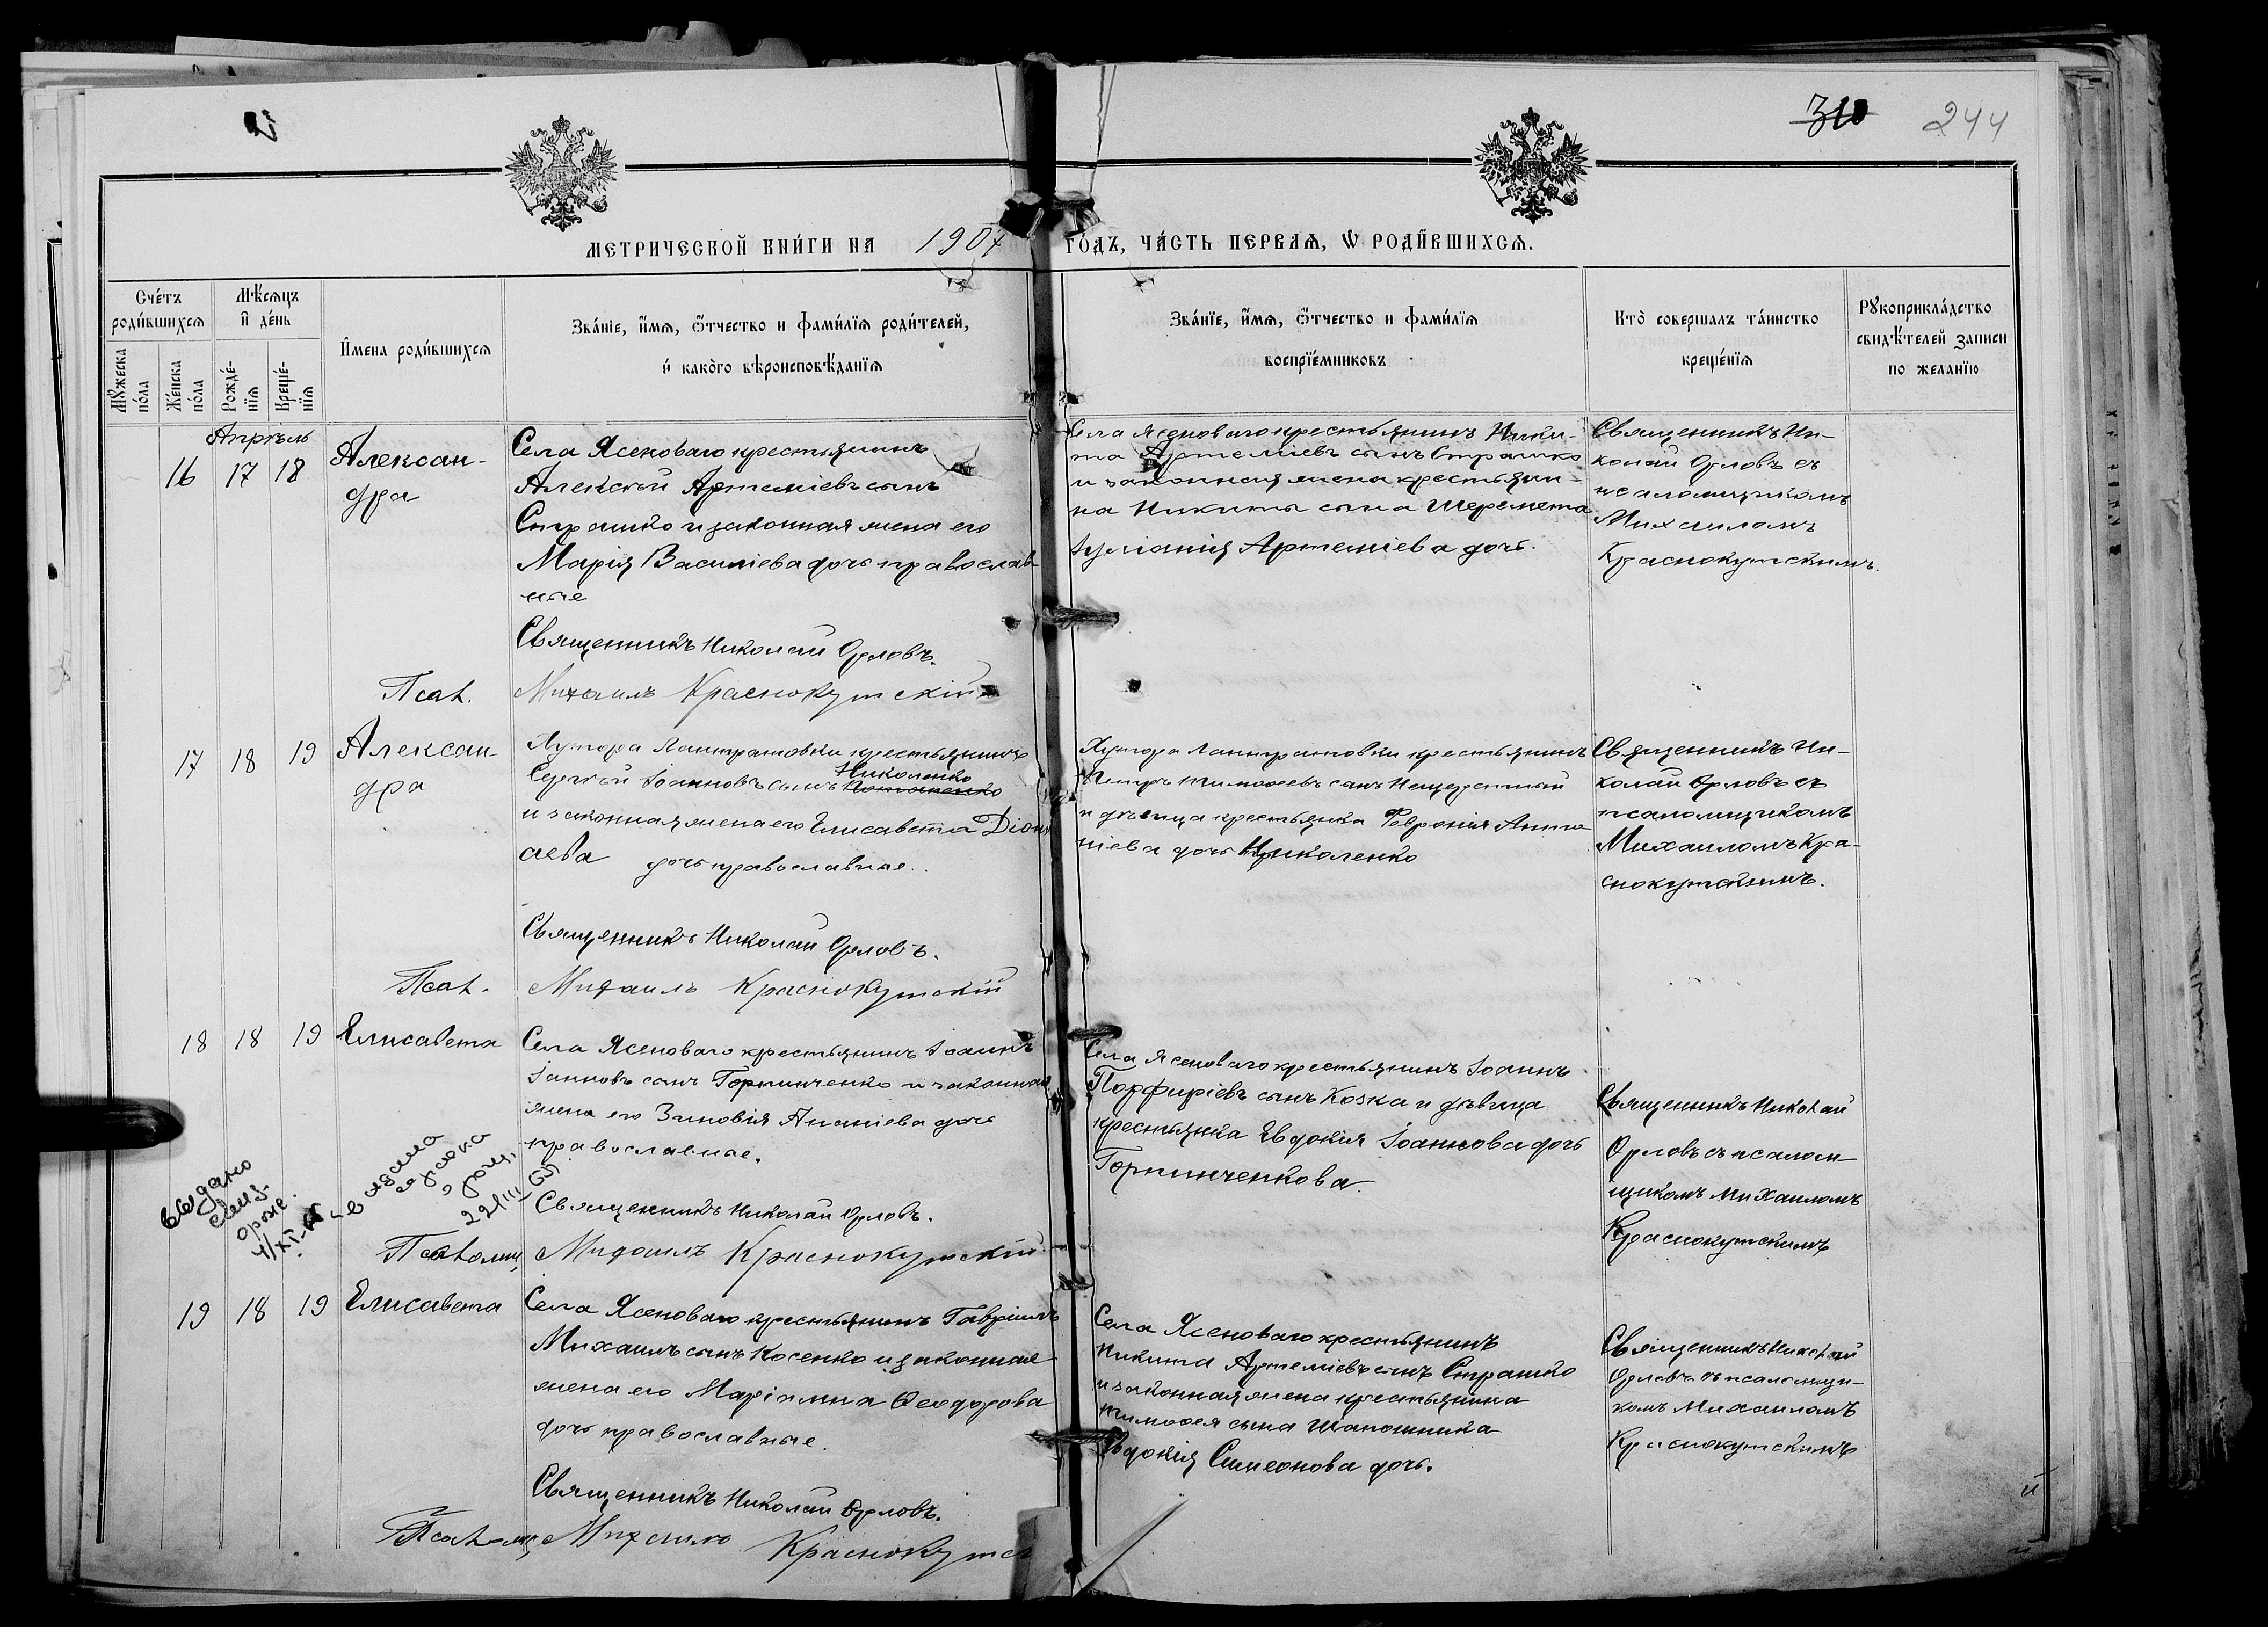 310 244
МЕТРИЧЕСКОЙ КНИ́ГИ НА 1907 ГО́ДЪ, ЧА́СТЬ ПЕРВАѦ, Ѡ РОДИ́ВШИХСѦ.
Сче́тъ роди́вшихсѧ
Мѣ́сѧцъ и҆ де́нь
И҆мена роди́вшихсѧ
Зва́нїе, и҆́мѧ, ѻ҆́тчество и фами́лїѧ роди́телей,
и҆ како́го вѣроисповѣ́данїѧ
Зва́нїе, и҆́мѧ, ѻ҆́тчество и фами́лїѧ
воспрїе́мниковъ
Кто̀ совершалъ та́инство
креще́нїѧ
Рꙋкоприкла́дство
свидѣ́телей записи
по желанїю
Мꙋ́жеска по́ла
Же́нска по́ла
Рожде́нїѧ
Креще́нїѧ
Апрѣль
16 17 18
Алексан-
дра
Села Ясеноваго крестьянинъ
Алексѣй Артеміевъ сынъ
Страшко и законная жена его
Марія Василіева дочь православ-
ные
Священникъ Николай Орловъ.
Псал. Михаилъ Краснокутскій
Села Ясеноваго крестьянинъ Ники-
та Артеміевъ сынъ Страшко
и законная жена крестьяни-
на Никиты сына Шеремета
Іуліанія Артеміева дочь.
Священникъ Ни-
колай Орловъ съ
псаломщикомъ
Михаиломъ
Краснокутскимъ.
17 18 19
Алексан-
дра
Хутора Лантратовки крестьянинъ
Николенко
Сергѣй Іоанновъ сынъ
и законная жена его Елисавета Діони
аева дочь православные.
Священникъ Николай Орловъ.
Псал. Михаилъ Краснокутскій
Хутора Лантратовки крестьянинъ
Петръ Тимоѳеевъ сынъ
и дѣвица крестьянка Февронія Анто
ніева дочь Николенко
Священникъ Ни-
колай Орловъ съ
псаломщикомъ
Михаиломъ Кра-
снокутскимъ.
18 18 19
Елисавета
Села Ясеноваго крестьянинъ Іоаннъ
Іанновъ сынъ Горпинченко и законная
жена его Зиновія Ананіева дочь
православные.
Священникъ Николай Орловъ.
Псаломщ, Михаилъ Краснокутскій
Села Ясеноваго крестьянинъ Іоаннъ
Порфиріевъ сынъ Козка и дѣвица
крестьянка Евдокія Іоаннова дочь
Горпинченкова.
Священникъ Николай
Орловъ съ псалом-
щикомъ Михаиломъ
Краснокутскимъ
выдано
19 18 19
Елисавета
Села Ясеноваго крестьянинъ Гавріилъ
Михаилъ сынъ Косенко и законная
жена его Маріамна Ѳеодорова
дочь православные.
Священникъ Николай Орловъ.
Псалом, Михаилъ Краснокутс
Села Ясеноваго крестьянинъ
Никита Артеміевъ сынъ Страшко
и законная жена крестьянина
Тимоѳея сына Шапошника
Евдокія Симеонова дочь.
Священникъ Николай
Орловъ съ псаломщи-
комъ Михаиломъ
Краснокутскимъ